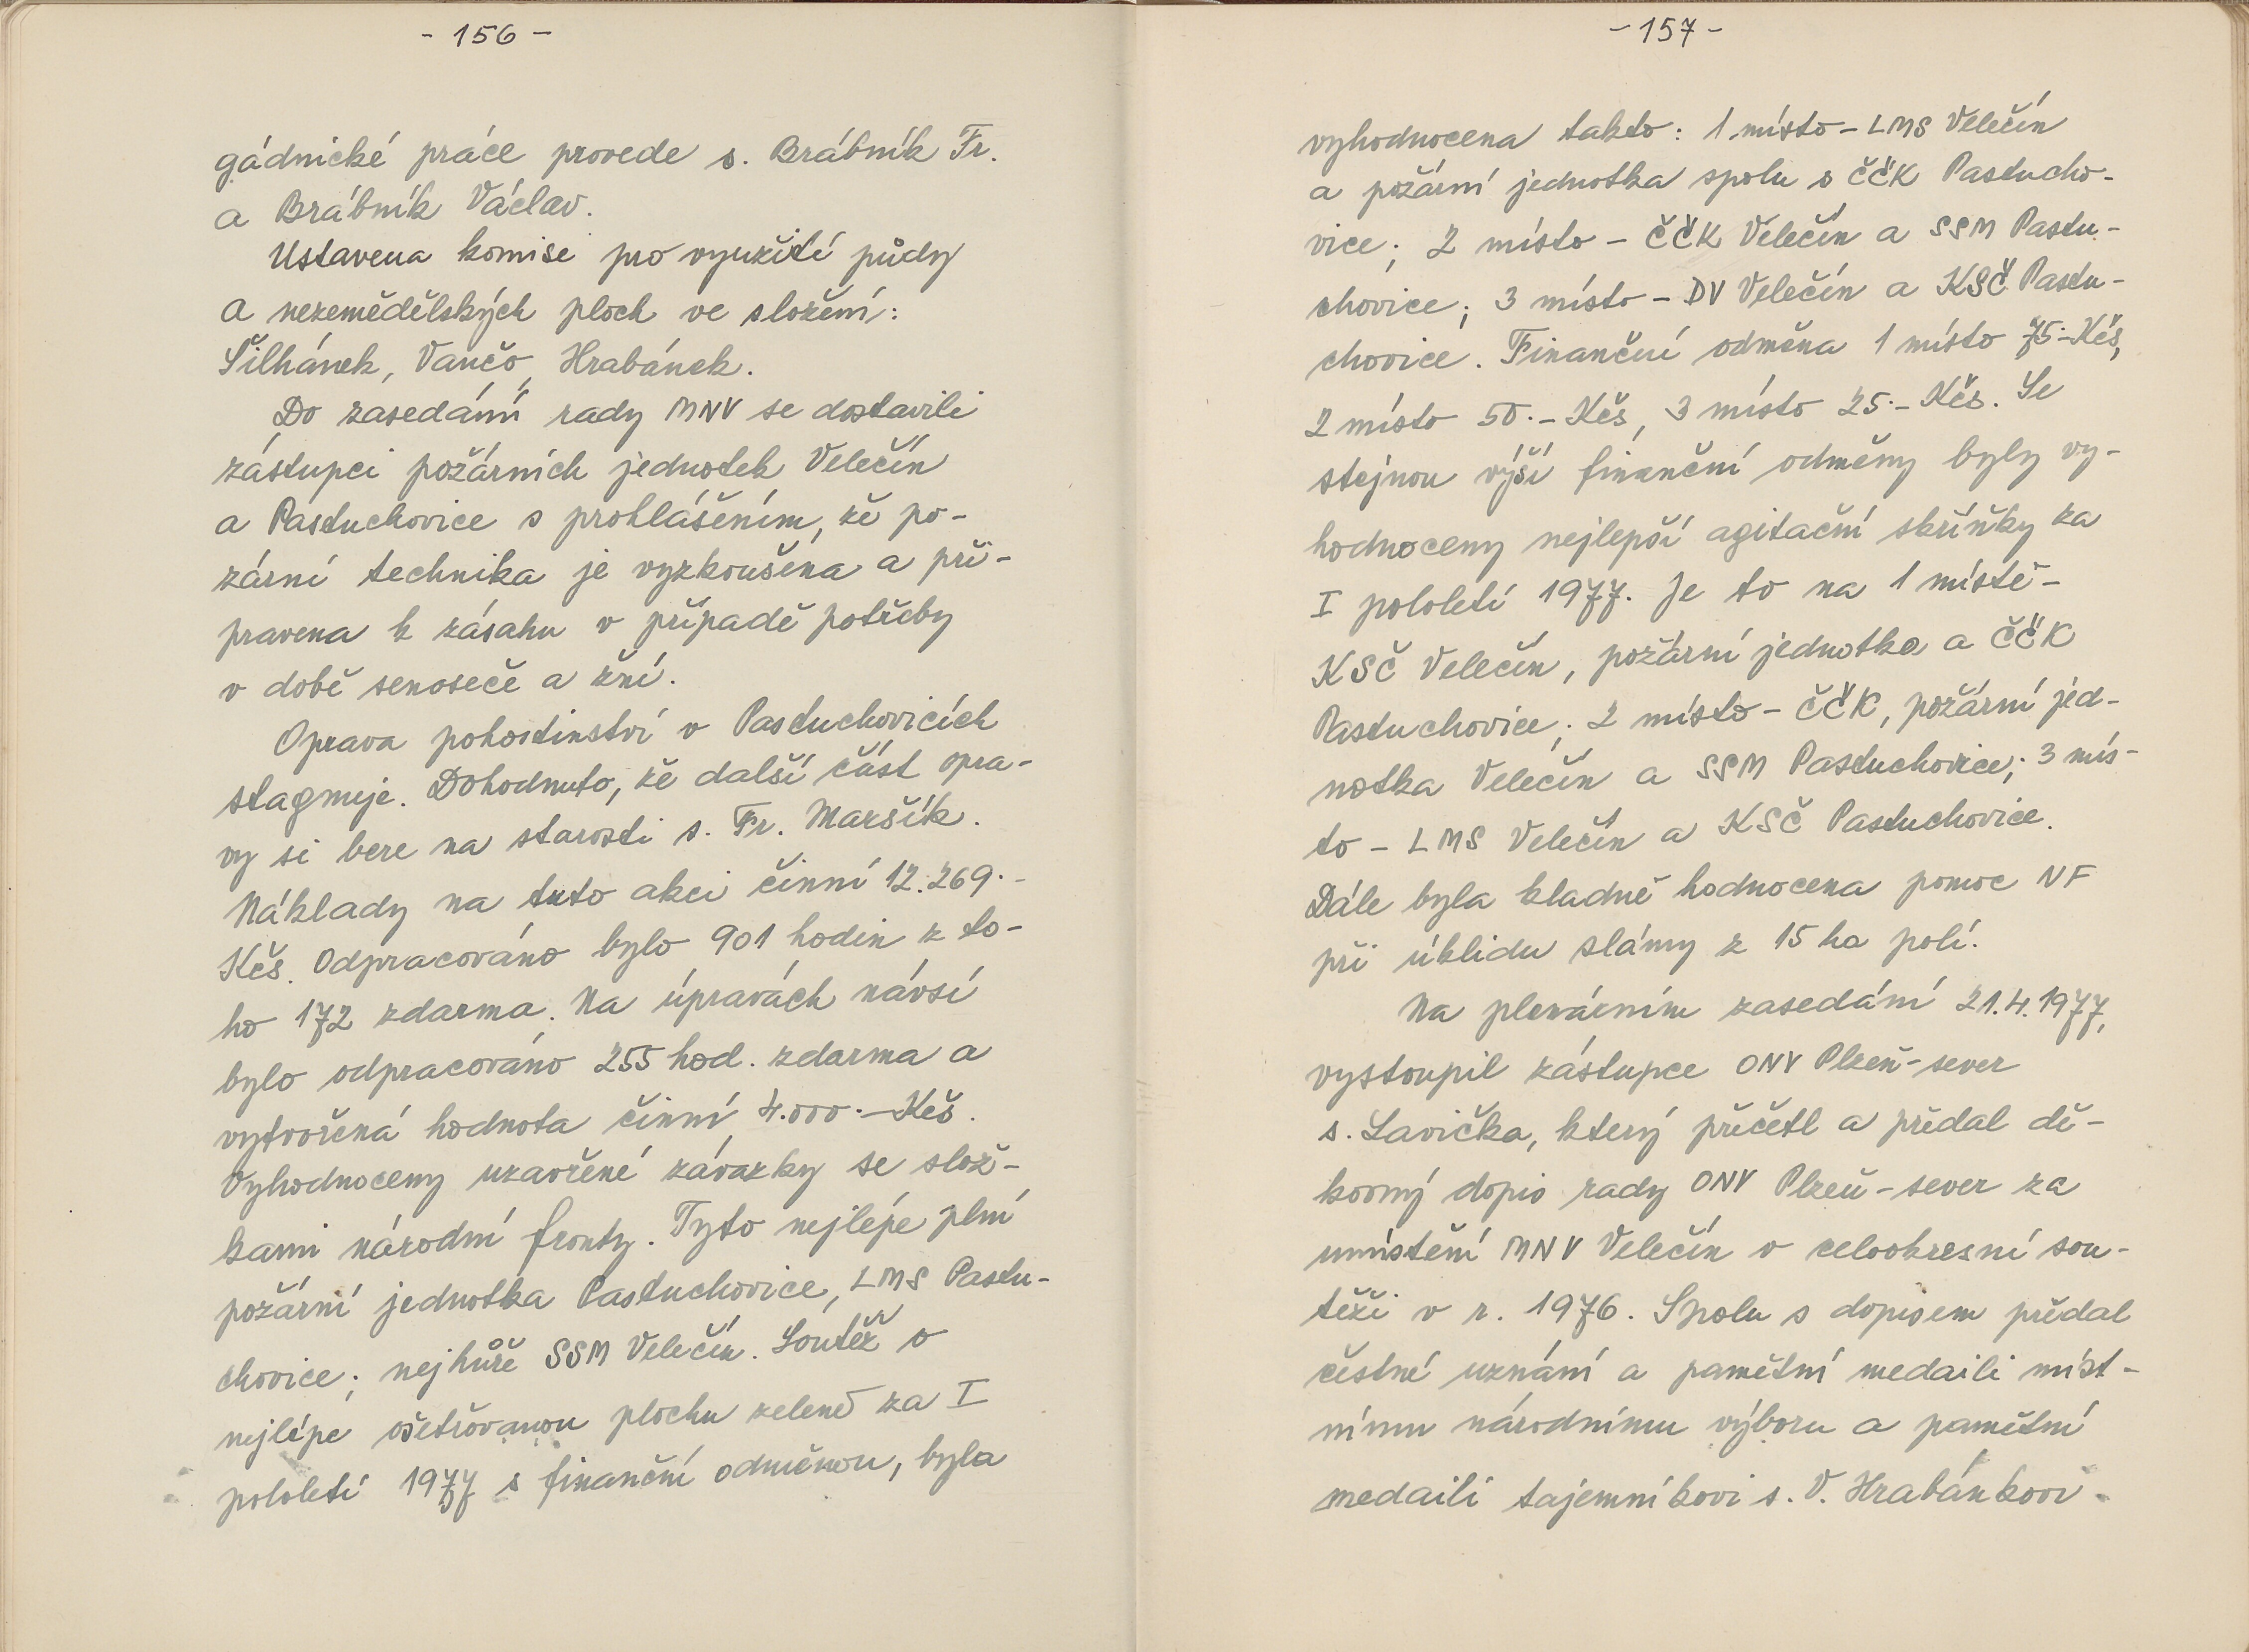 - 156 -
gádnické práce provede s. Brábník Fr.
a Brábník Václav.
Ustavena komise pro využití půdy
a nezemědělských ploch ve složení:
Šilhánek, Vančo, Hrabánek.
Do zasedání rady MNV se dostavili
zástupci požárních jednotek Velečín
a Pastuchovice s prohlášením, že po-
žární technika je vyzkoušena a při-
pravena k zásahu v případě potřeby
v době senoseče a žní.
Oprava pohostinství v Pastuchovicích
stagnuje. Dohodnuto, že další část opra-
vy si bere na starosti s. Fr. Maršík.
Náklady na tuto akci činní 12.269.-
Kčs. Odpracováno bylo 901 hodin z to-
ho 172 zdarma. Na úpravách návsí
bylo odpracováno 255 hod. zdarma a
vytvořená hodnota činní 4.000.- Kčs.
Vyhodnoceny uzavřené závazky se slož-
kami národní fronty. Tyto nejlépe plní
požární jednotka Pastuchovice, LMS Pastu-
chovice; nejhůře SSM Velečín. Soutěž o
nejlépe ošetřovanou plochu zeleně za I
pololetí 1977 s finanční odměnou, byla
- 157 -
vyhodnocena takto: 1 místo - LMS Velečín
a požární jednotka spolu s ČČK Pastucho-
vice; 2 místo - ČČK Velečín a SSM Pastu-
chovice; 3 místo - DV Velečín a KSČ Pastu-
chovice. Finanční odměna 1 místo 75.- Kčs,
2 místo 50.- Kčs, 3 místo 25.- Kčs. Se
stejnou výší finanční odměny byly vy-
hodnoceny nejlepší agitační skříňky za
I pololetí 1977. Je to na 1 místě -
KSČ Velečín, požární jednotka a ČČK
Pastuchovice; 2 místo - ČČK, požární jed-
notka Velečín a SSM Pastuchovice; 3 mís-
to - LMS Velečín a KSČ Pastuchovice.
Dále byla kladně hodnocena pomoc NF
při úklidu slámy z 15 ha polí.
Na plenárním zasedání 21.4.1977,
vystoupil zástupce ONV Plzeň-sever
s. Lavička, který přečetl a předal dě-
kovný dopis rady ONV Plzeň-sever za
umístění MNV Velečín v celookresní sou-
těži v r. 1976. Spolu s dopisem předal
čestné uznání a pamětní medaili míst-
nímu národnímu výboru a pamětní
medaili tajemníkovi s. V. Hrabánkovi.